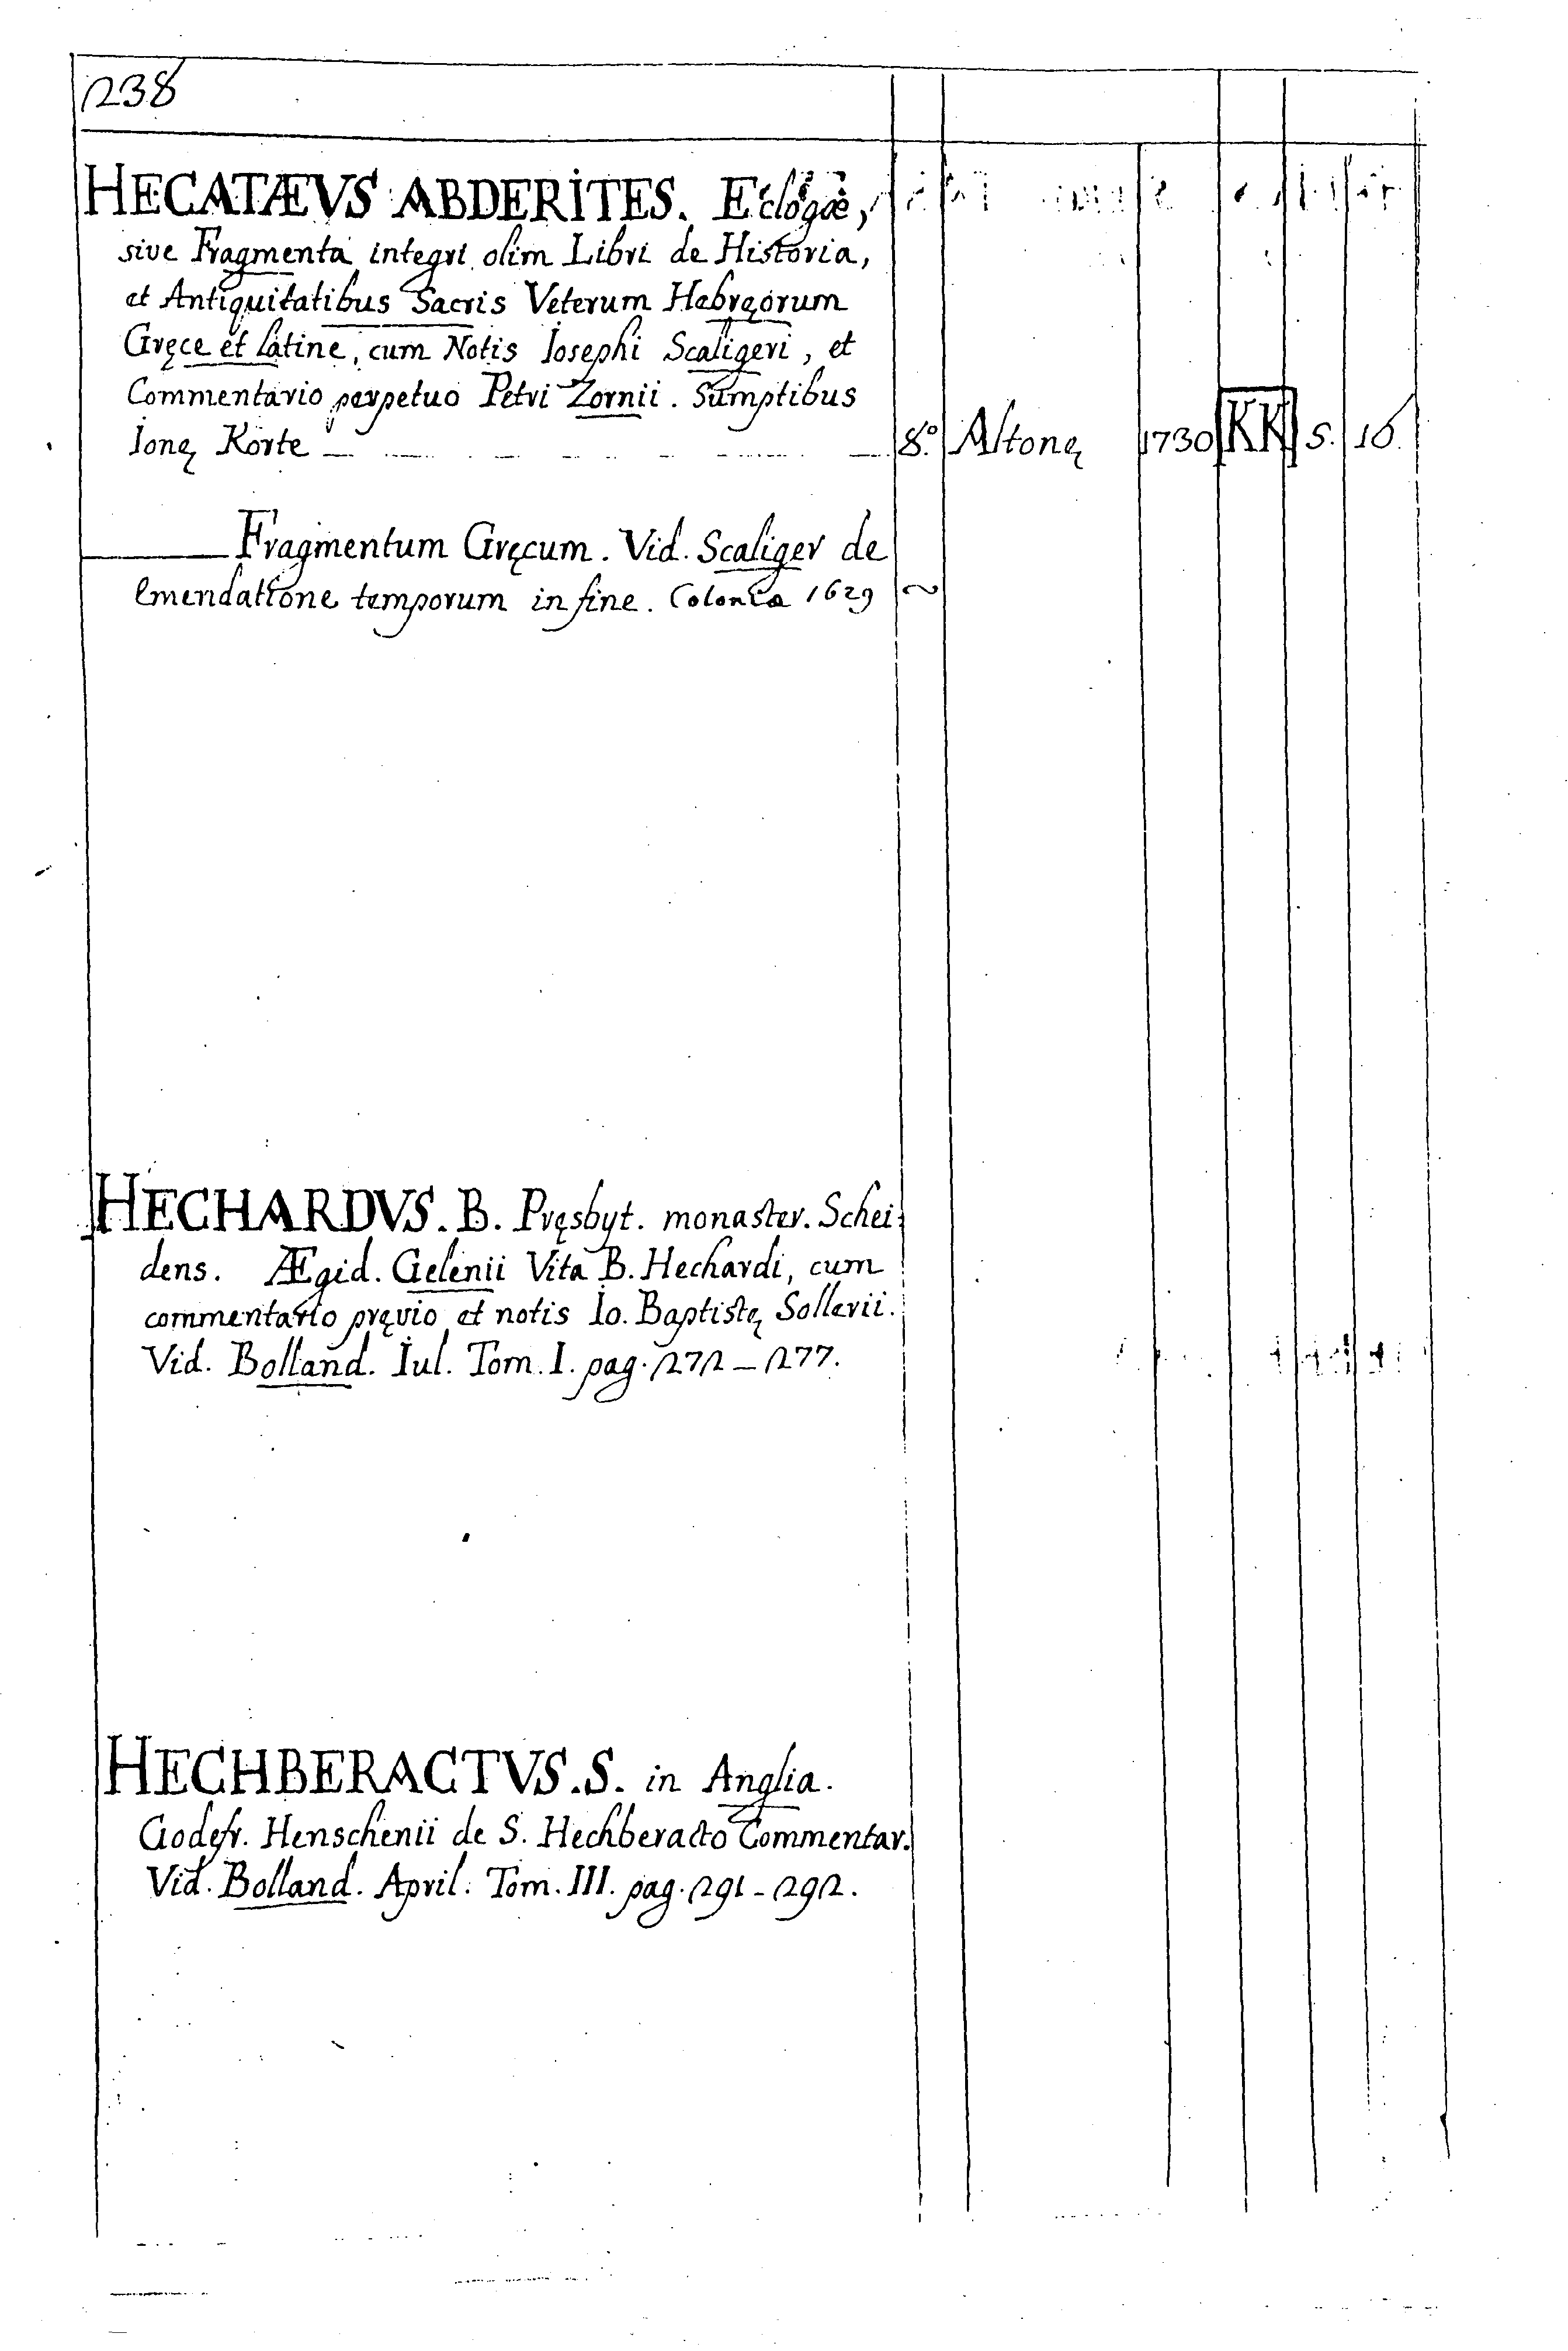 238
HECATÆVS ABDERITES. Eclogæ,
sive Fragmenta integri olim Libri de Historia,
et Antiquitatibus Sacris Veterum Hebręorum
Gręce et latine, cum Notis Iosephi Scaligeri, et
Commentario perpetuo Petri Zornii. Sumptibus
Ionę Korte 8.º Altonę 1730 KK 5. 16.
Fragmentum Gręcum. Vid. Scaliger de
Emendatione temporum in fine. Coloniæ 1629 ~
HECHARDVS. B. Pręsbyt. monaster. Schei-
dens. Ægid. Gelenii Vita B. Hechardi, cum
commentario pręvio et notis Io. Baptistę Sollerii.
Vid. Bolland. Iul. Tom. I. pag. 272 - 277.
HECHBERACTVS. S. in Anglia.
Godefr. Henschenii de S. Hechberacto Commentar.
Vid. Bolland. April. Tom. III. pag. 291 - 292.